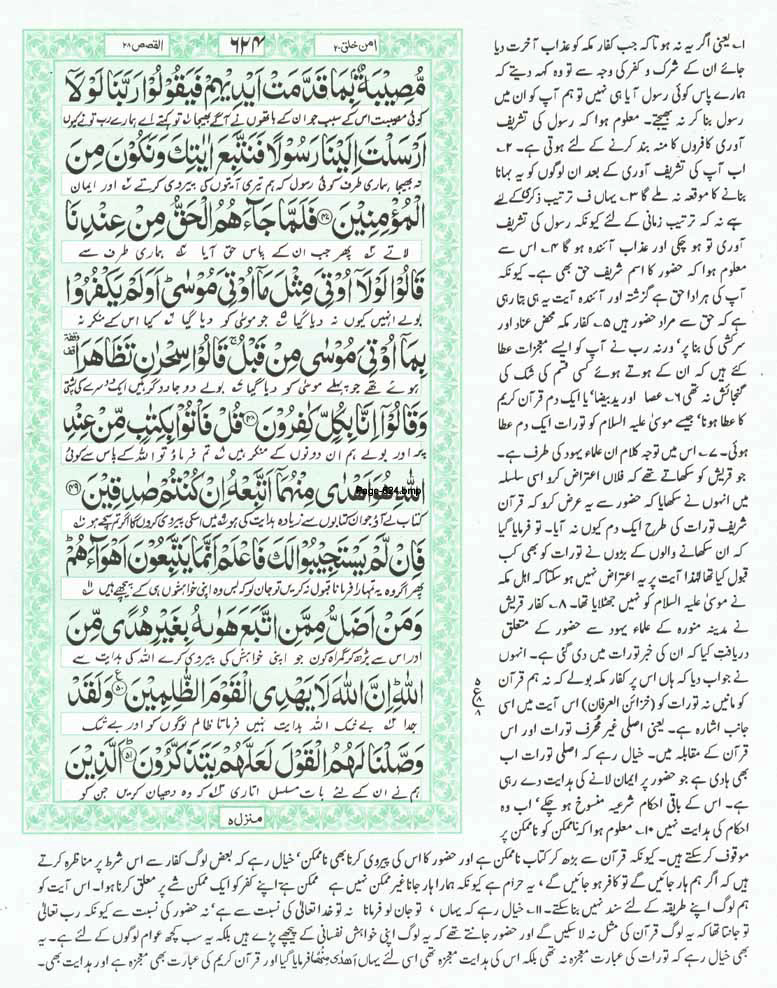 القصص ۲۸
۶۲۴
امن خلق ۲۰
مُّصِيْبَةٌۢ بِمَا قَدَّمَتْ اَيْدِيْهِمْ فَيَقُوْلُوْا رَبَّنَا لَوْلَاۤ
کوئی مصیبت اس کے سبب جو ان کے ہاتھوں نے آگے بھیجا تو کہتے اے ہمارے رب تو نے کیوں
اَرْسَلْتَ اِلَيْنَا رَسُوْلًا فَنَتَّبِعَ اٰيٰتِكَ وَنَكُوْنَ مِنَ
نہ بھیجا ہماری طرف کوئی رسول کہ ہم تیری آیتوں کی پیروی کرتے اور ایمان
الْمُؤْمِنِيْنَ ۴۷ فَلَمَّا جَآءَهُمُ الْحَقُّ مِنْ عِنْدِنَا
لاتے پھر جب ان کے پاس حق آیا ہماری طرف سے
قَالُوْا لَوْلَاۤ اُوْتِيَ مِثْلَ مَاۤ اُوْتِيَ مُوْسٰى اَوَلَمْ يَكْفُرُوْا
بولے انہیں کیوں نہ دیا گیا جو موسیٰ کو دیا گیا کیا اس کے منکر نہ
بِمَاۤ اُوْتِيَ مُوْسٰى مِنْ قَبْلُ قَالُوْا سِحْرٰنِ تَظَاهَرَا
ہوئے تھے جو پہلے موسیٰ کو دیا گیا بولے دو جادو گر ہیں ایک دوسرے کی پشتی
وَقَالُوْۤا اِنَّا بِكُلٍّ كٰفِرُوْنَ ۴۸ قُلْ فَاْتُوْا بِكِتٰبٍ مِّنْ عِنْدِ
پر اور بولے ہم ان دونوں کے منکر ہیں تم فرماؤ تو اللہ کے پاس سے کوئی
اللّٰهِ هُوَ اَهْدٰى مِنْهُمَاۤ اَتَّبِعْهُ اِنْ كُنْتُمْ صٰدِقِيْنَ ۴۹
Page-624.bmp
کتاب لے آؤ جو ان کتابوں سے زیادہ ہدایت کی ہو میں اسکی پیروی کروں گا اگر تم سچے ہو
فَاِنْ لَّمْ يَسْتَجِيْبُوْا لَكَ فَاعْلَمْ اَنَّمَا يَتَّبِعُوْنَ اَهْوَآءَهُمْ
پھر اگر وہ یہ تمہارا فرمانا قبول نہ کریں تو جان لو کہ بس وہ اپنی خواہشوں ہی کے پیچھے ہیں
وَمَنْ اَضَلُّ مِمَّنِ اتَّبَعَ هَوٰىهُ بِغَيْرِ هُدًى مِّنَ
اور اس سے بڑھ کر گمراہ کون جو اپنی خواہش کی پیروی کرے اللہ کی ہدایت سے
اللّٰهِ اِنَّ اللّٰهَ لَا يَهْدِى الْقَوْمَ الظّٰلِمِيْنَ ۵۰ وَلَقَدْ
جدا بے شک اللہ ہدایت نہیں فرماتا ظالم لوگوں کو اور بے شک
وَصَّلْنَا لَهُمُ الْقَوْلَ لَعَلَّهُمْ يَتَذَكَّرُوْنَ ۵۱ اَلَّذِيْنَ
ہم نے ان کے لئے بات مسلسل اتاری کہ وہ دھیان کریں جن کو
منزل ۵
۱۔ یعنی اگر یہ نہ ہوتا کہ جب کفار مکہ کو عذاب آخرت دیا
جائے ان کے شرک و کفر کی وجہ سے تو وہ کہہ دیتے کہ
ہمارے پاس کوئی رسول آیا ہی نہیں تو ہم آپ کو ان میں
رسول بنا کر نہ بھیجتے۔ معلوم ہوا کہ رسول کی تشریف
آوری کافروں کا منہ بند کرنے کے لئے ہوتی ہے۔ ۲۔
اب آپ کی تشریف آوری کے بعد ان لوگوں کو یہ بہانا
بنانے کا موقعہ نہ ملے گا ۳۔ یہاں ف ترتیب ذکری کے لئے
ہے نہ کہ ترتیب زمانی کے لئے کیونکہ رسول کی تشریف
آوری تو ہو چکی اور عذاب آئندہ ہو گا ۴۔ اس سے
معلوم ہوا کہ حضور کا اسم شریف حق بھی ہے۔ کیونکہ
آپ کی ہر ادا حق ہے گزشتہ اور آئندہ آیت یہ ہی بتا رہی
ہے کہ حق سے مراد حضور ہیں ۵۔ کفار مکہ محض عناد اور
سرکشی کی بنا پر' ورنہ رب نے آپ کو ایسے معجزات عطا
کئے ہیں کہ ان کے ہوتے ہوئے کسی قسم کی شک کی
گنجائش نہ تھی ۶۔ عصا اور یدبیضا' یا ایک دم قرآن کریم
کا عطا ہونا' جیسے موسیٰ علیہ السلام کو تورات ایک دم عطا
ہوئی۔ ۷۔ اس میں توجہ کلام ان علماء یہود کی طرف ہے۔
جو قریش کو سکھاتے تھے کہ فلاں اعتراض کرو اسی سلسلہ
میں انہوں نے سکھایا کہ حضور سے یہ عرض کرو کہ قرآن
شریف تورات کی طرح ایک دم کیوں نہ آیا۔ تو فرمایا گیا
کہ ان سکھانے والوں کے بڑوں نے تورات کو بھی کب
قبول کیا تھا لہٰذا آیت پر یہ اعتراض نہیں ہو سکتا کہ اہل مکہ
نے موسیٰ علیہ السلام کو نہیں جھٹلایا تھا۔ ۸۔ کفار قریش
نے مدینہ منورہ کے علماء یہود سے حضور کے متعلق
دریافت کیا کہ ان کی خبر تورات میں دی گئی ہے۔ انہوں
نے جواب دیا کہ ہاں اس پر کفار مکہ بولے کہ نہ ہم قرآن
کو مانیں نہ تورات کو (خزائن العرفان) اس آیت میں اسی
جانب اشارہ ہے۔ یعنی اصلی غیر محرف تورات اور اس
قرآن کے مقابلہ میں۔ خیال رہے کہ اصلی تورات اب
بھی ہادی ہے جو حضور پر ایمان لانے کی ہدایت دے رہی
ہے۔ اس کے باقی احکام شرعیہ منسوخ ہو چکے' اب وہ
احکام کی ہدایت نہیں ۱۰۔ معلوم ہوا کہ ناممکن کو ناممکن پر
موقوف کر سکتے ہیں۔ کیونکہ قرآن سے بڑھ کر کتاب ناممکن ہے اور حضور کا اس کی پیروی کرنا بھی ناممکن' خیال رہے کہ بعض لوگ کفار سے اس شرط پر مناظرہ کرتے
ہیں کہ اگر ہم ہار جائیں گے تو کافر ہو جائیں گے، یہ حرام ہے کیونکہ ہمارا ہار جانا غیر ممکن نہیں ہے ممکن ہے اپنے کفر کو ایک ممکن شے پر معلق کرنا ہوا۔ اس آیت کو
ہم لوگ اپنے طریقہ کے لئے سند نہیں بنا سکتے۔ ۱۱۔ خیال رہے کہ یہاں، تو جان لو فرمانا نہ تو خدا تعالیٰ کی نسبت سے ہے' نہ حضور کی نسبت سے کیونکہ رب تعالیٰ
تو جانتا تھا کہ یہ لوگ قرآن کی مثل نہ لا سکیں گے اور حضور جانتے تھے کہ یہ لوگ اپنی خواہش نفسانی کے پیچھے پڑے ہیں بلکہ یہ سب کچھ عوام لوگوں کے لئے ہے۔ یہ
بھی خیال رہے کہ تورات کی عبارت معجزہ نہ تھی بلکہ اس کی ہدایت معجزہ تھی اسی لئے یہاں اَهْدٰى مِنْهُمَا فرمایا گیا اور قرآن کریم کی عبارت بھی معجزہ ہے اور ہدایت بھی۔